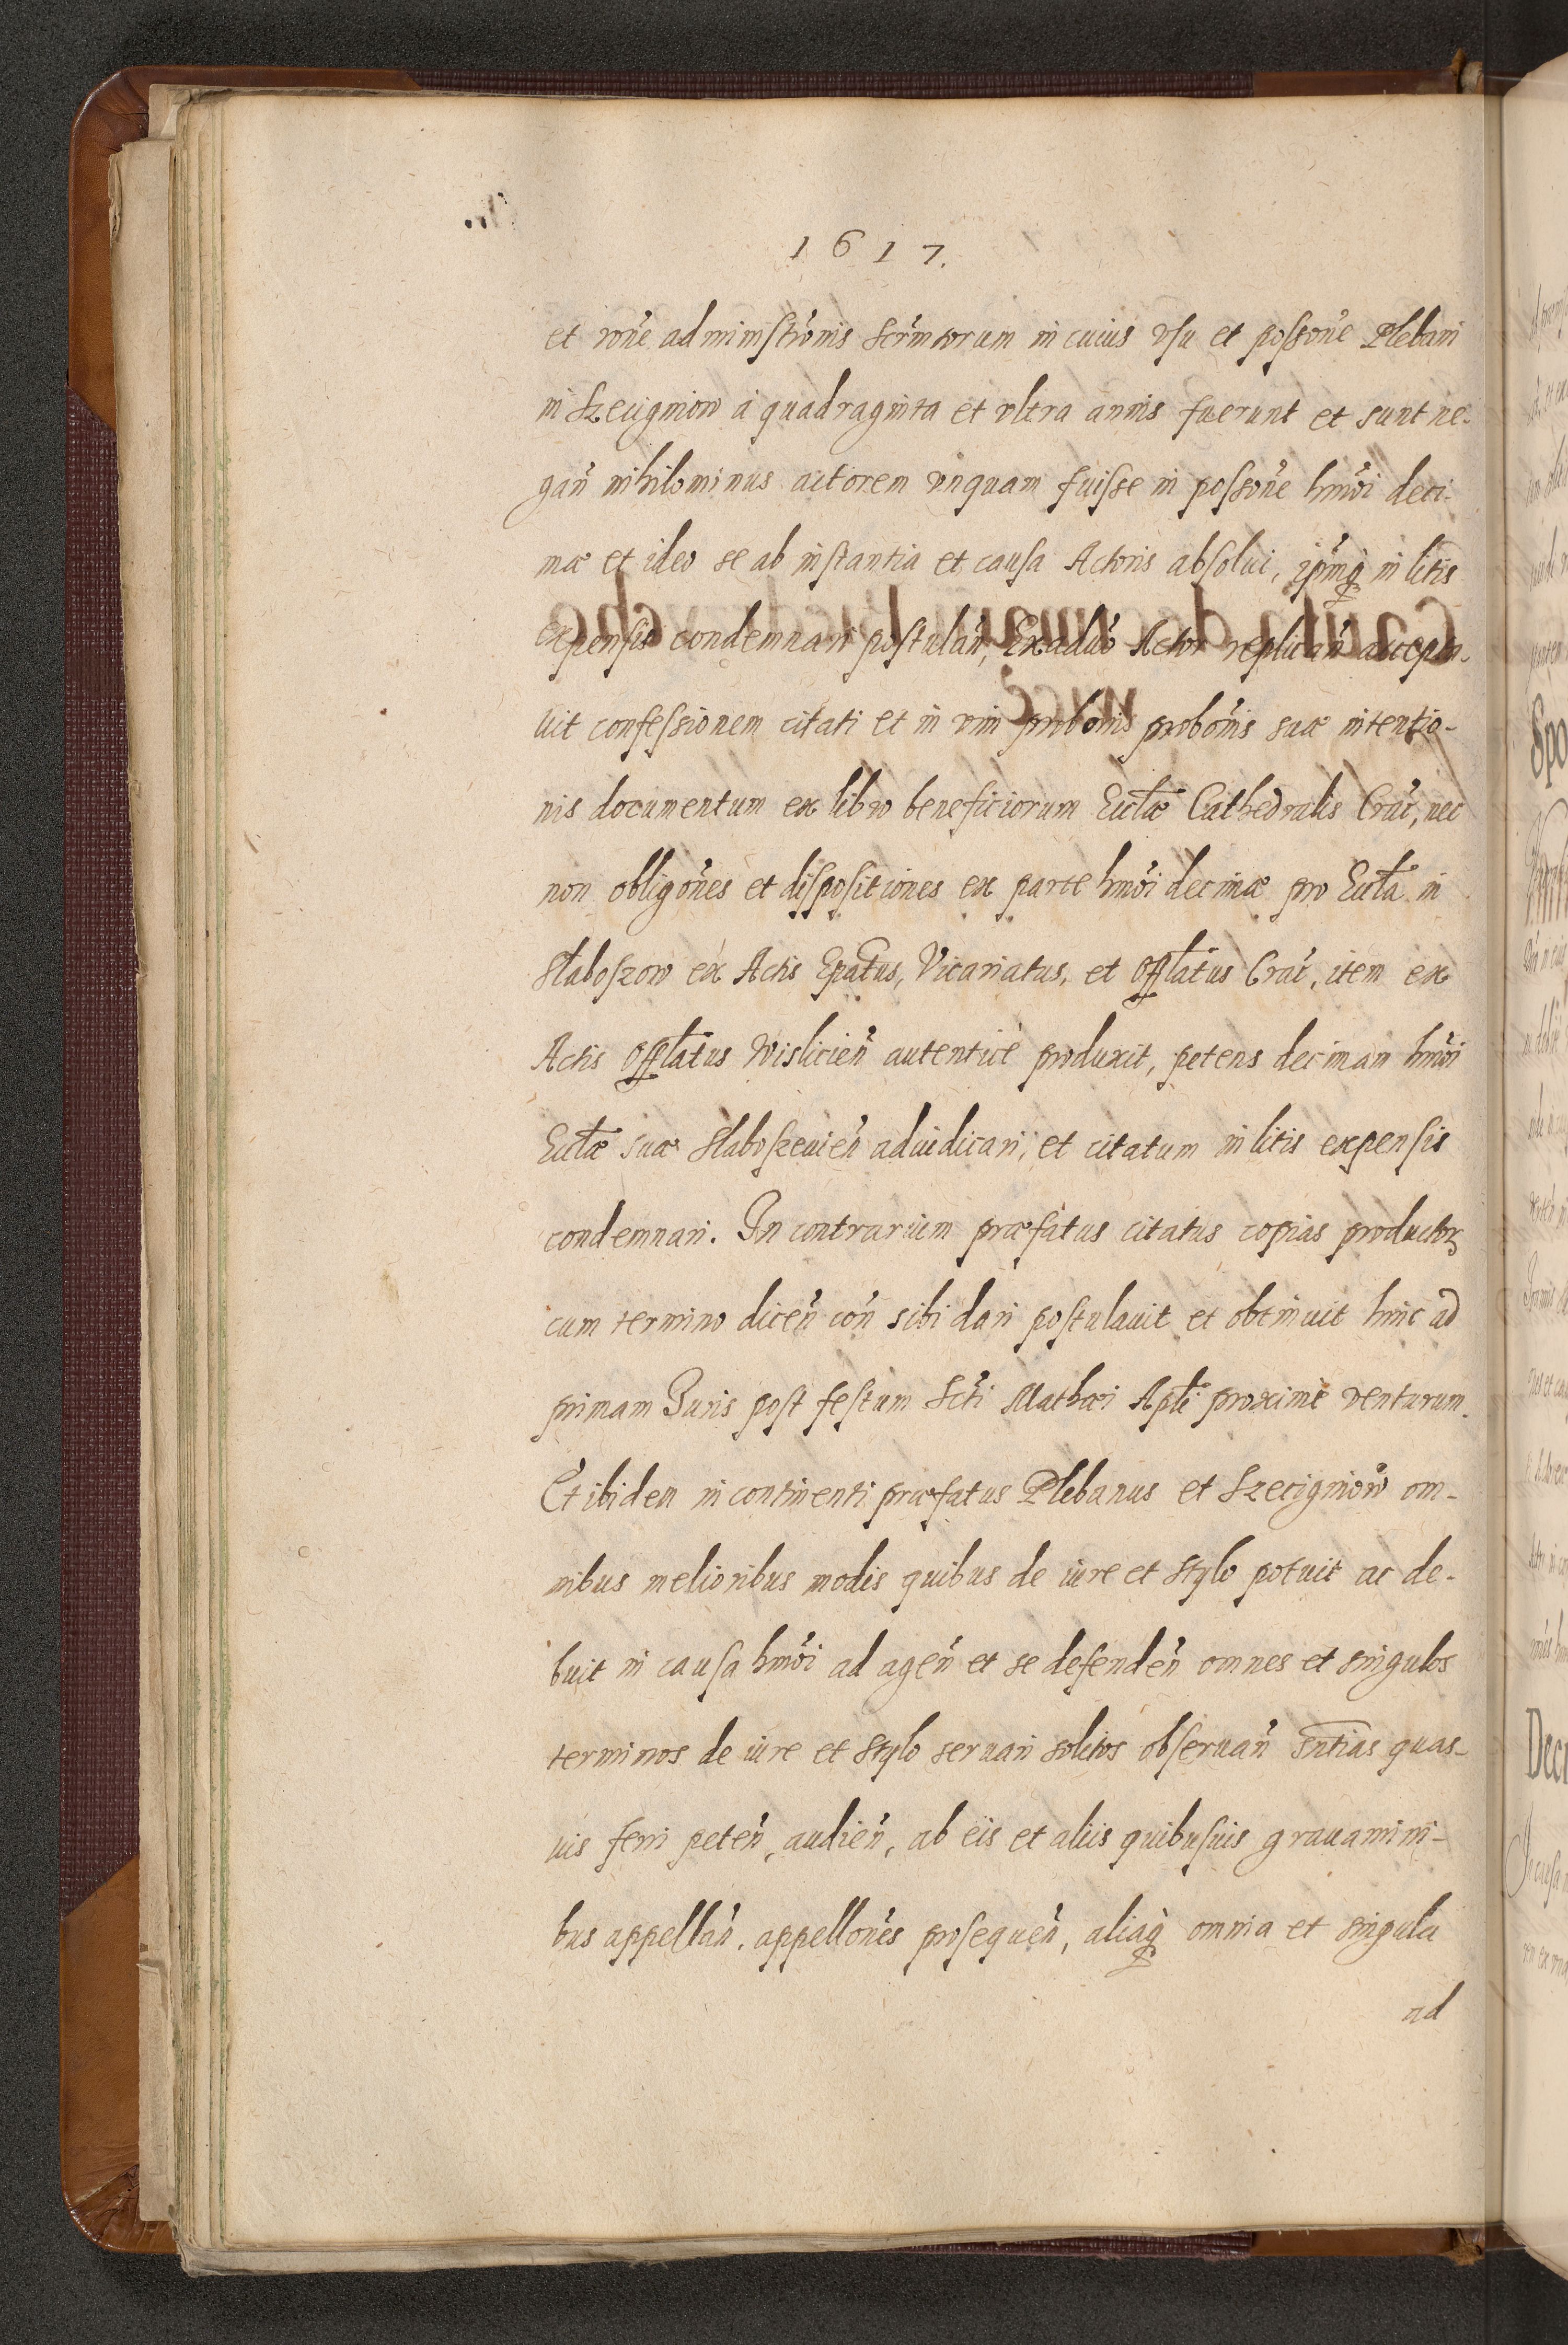 1617.
et rone administronis scrmtorum in cuius vsu et possone Plebani
in Szczigniow a quadraginta et vltra annis fuerunt et sunt ne-
gan nihilominus actorem vnquam fuisse in possone hmoi deci-
mæ et ideo se ab instantia et causa Actoris absolui, ipmq in litis
expensis condemnari postulan, Exaduo Actor replican accepta-
uit confessionem citati et in vim probonis probonis suæ intentio-
nis documentum ex libro beneficiorum Ecclæ Cathedralis Crac, nec
non obligones et dispositiones ex parte hmoi decimæ pro Eccla in
Slaboszow ex Actis Epatus, Vicariatus, et Offlatus Crac, item ex
Actis Offlatus Wislicien autentice produxit, petens decimam hmoi
Ecclæ suæ Slaboszeuien adiudicari, et citatum in litis expensis
condemnari. In contrarium præfatus citatus copias productor
cum termino dicen con sibi dari postulauit et obtinuit hinc ad
primam Juris post festum Scti Mathæi Apli proxime venturum.
Et ibidem in continenti præfatus Plebanus et Szczigniow om-
nibus melioribus modis quibus de iure et stylo potuit ac de-
buit in causa hmoi ad agen et se defenden omnes et singulos
terminos de iure et stylo seruari solitos obseruan sntias quas-
uis ferri peten, audien, ab eis et aliis quibusuis grauamini-
bus appellan, appellones prosequen, aliaq omnia et singula
ad